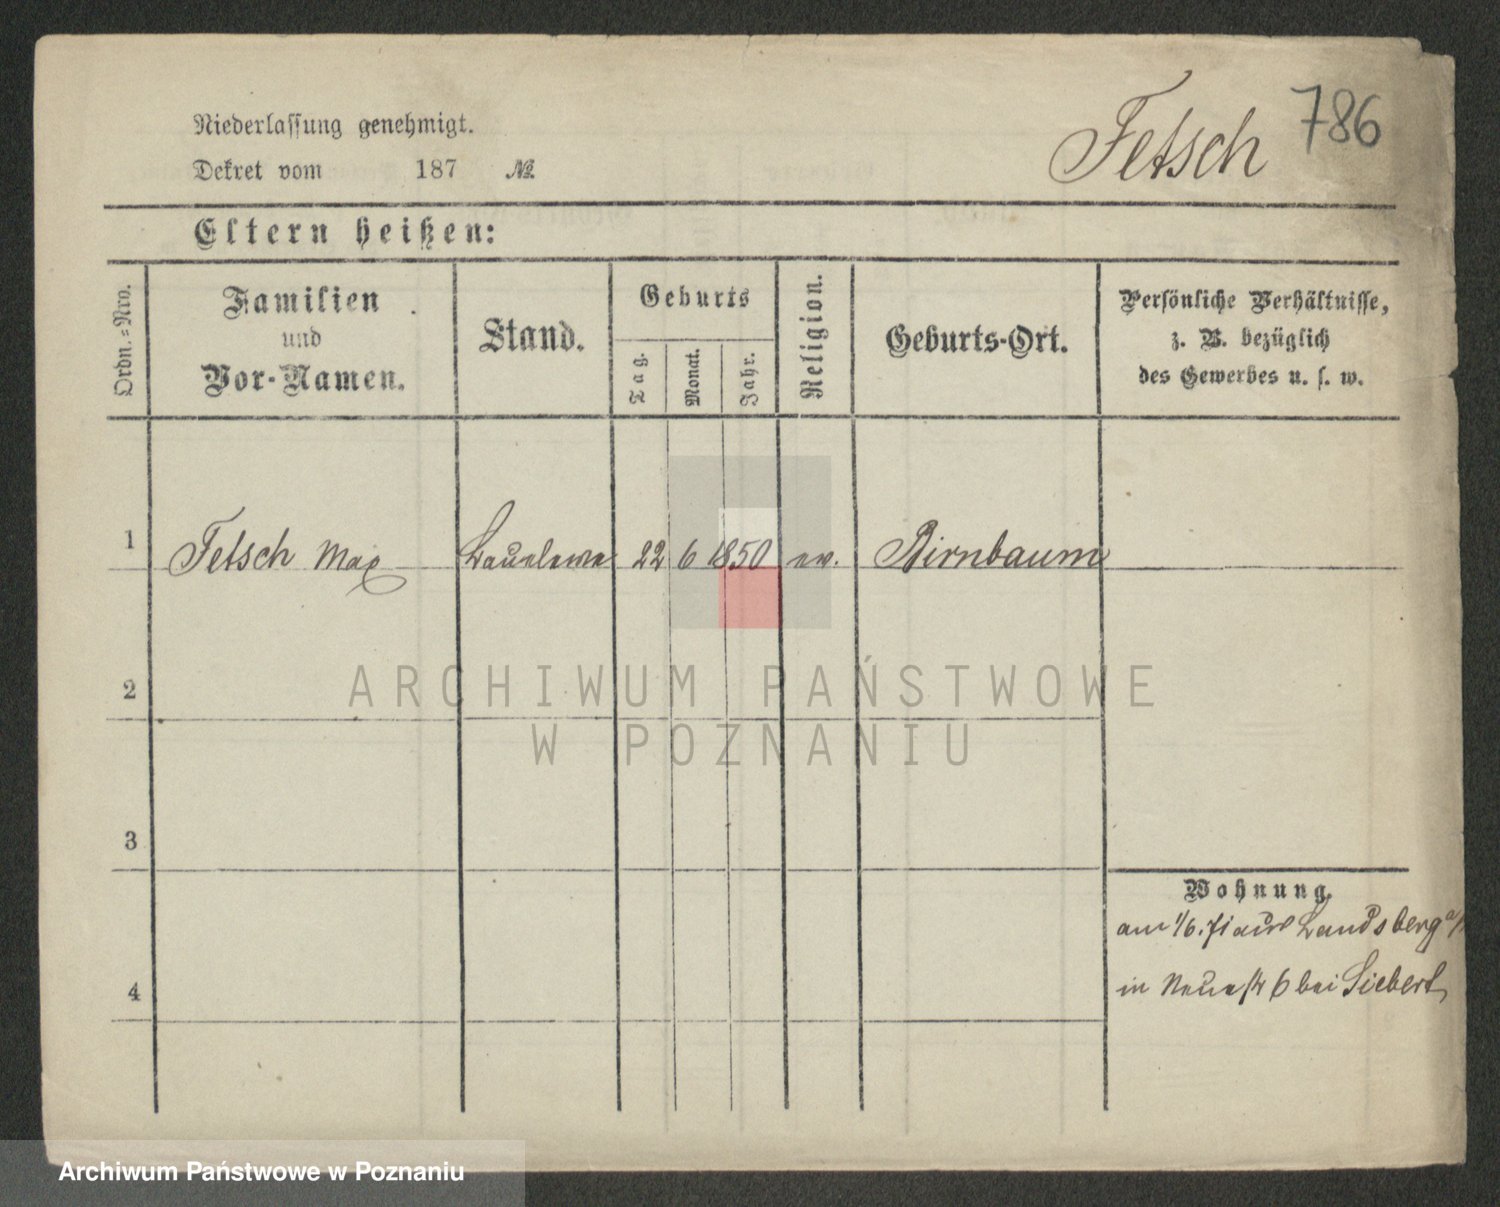 786
Fetsch
Niederlassung genehmigt.
Dekret vom 187 №
Eltern heißen:
Ordn.=Nro.
Familien
und
Vor-Namen.
Stand.
Geburts
Tag.
Monat.
Jahr.
Religion.
Geburts-Ort.
Persönliche Verhältnisse,
z. B. bezüglich
des Gewerbes u. s. w.
1 Fetsch Max 22 6 1850 ev. Birnbaum
2
3
4
Wohnung.
am 1/6. 71 aus Landsberg a/
in Neue str 6 bei Siebert
ARCHIWUM PAŃSTWOWE
W POZNANIU
Archiwum Państwowe w Poznaniu